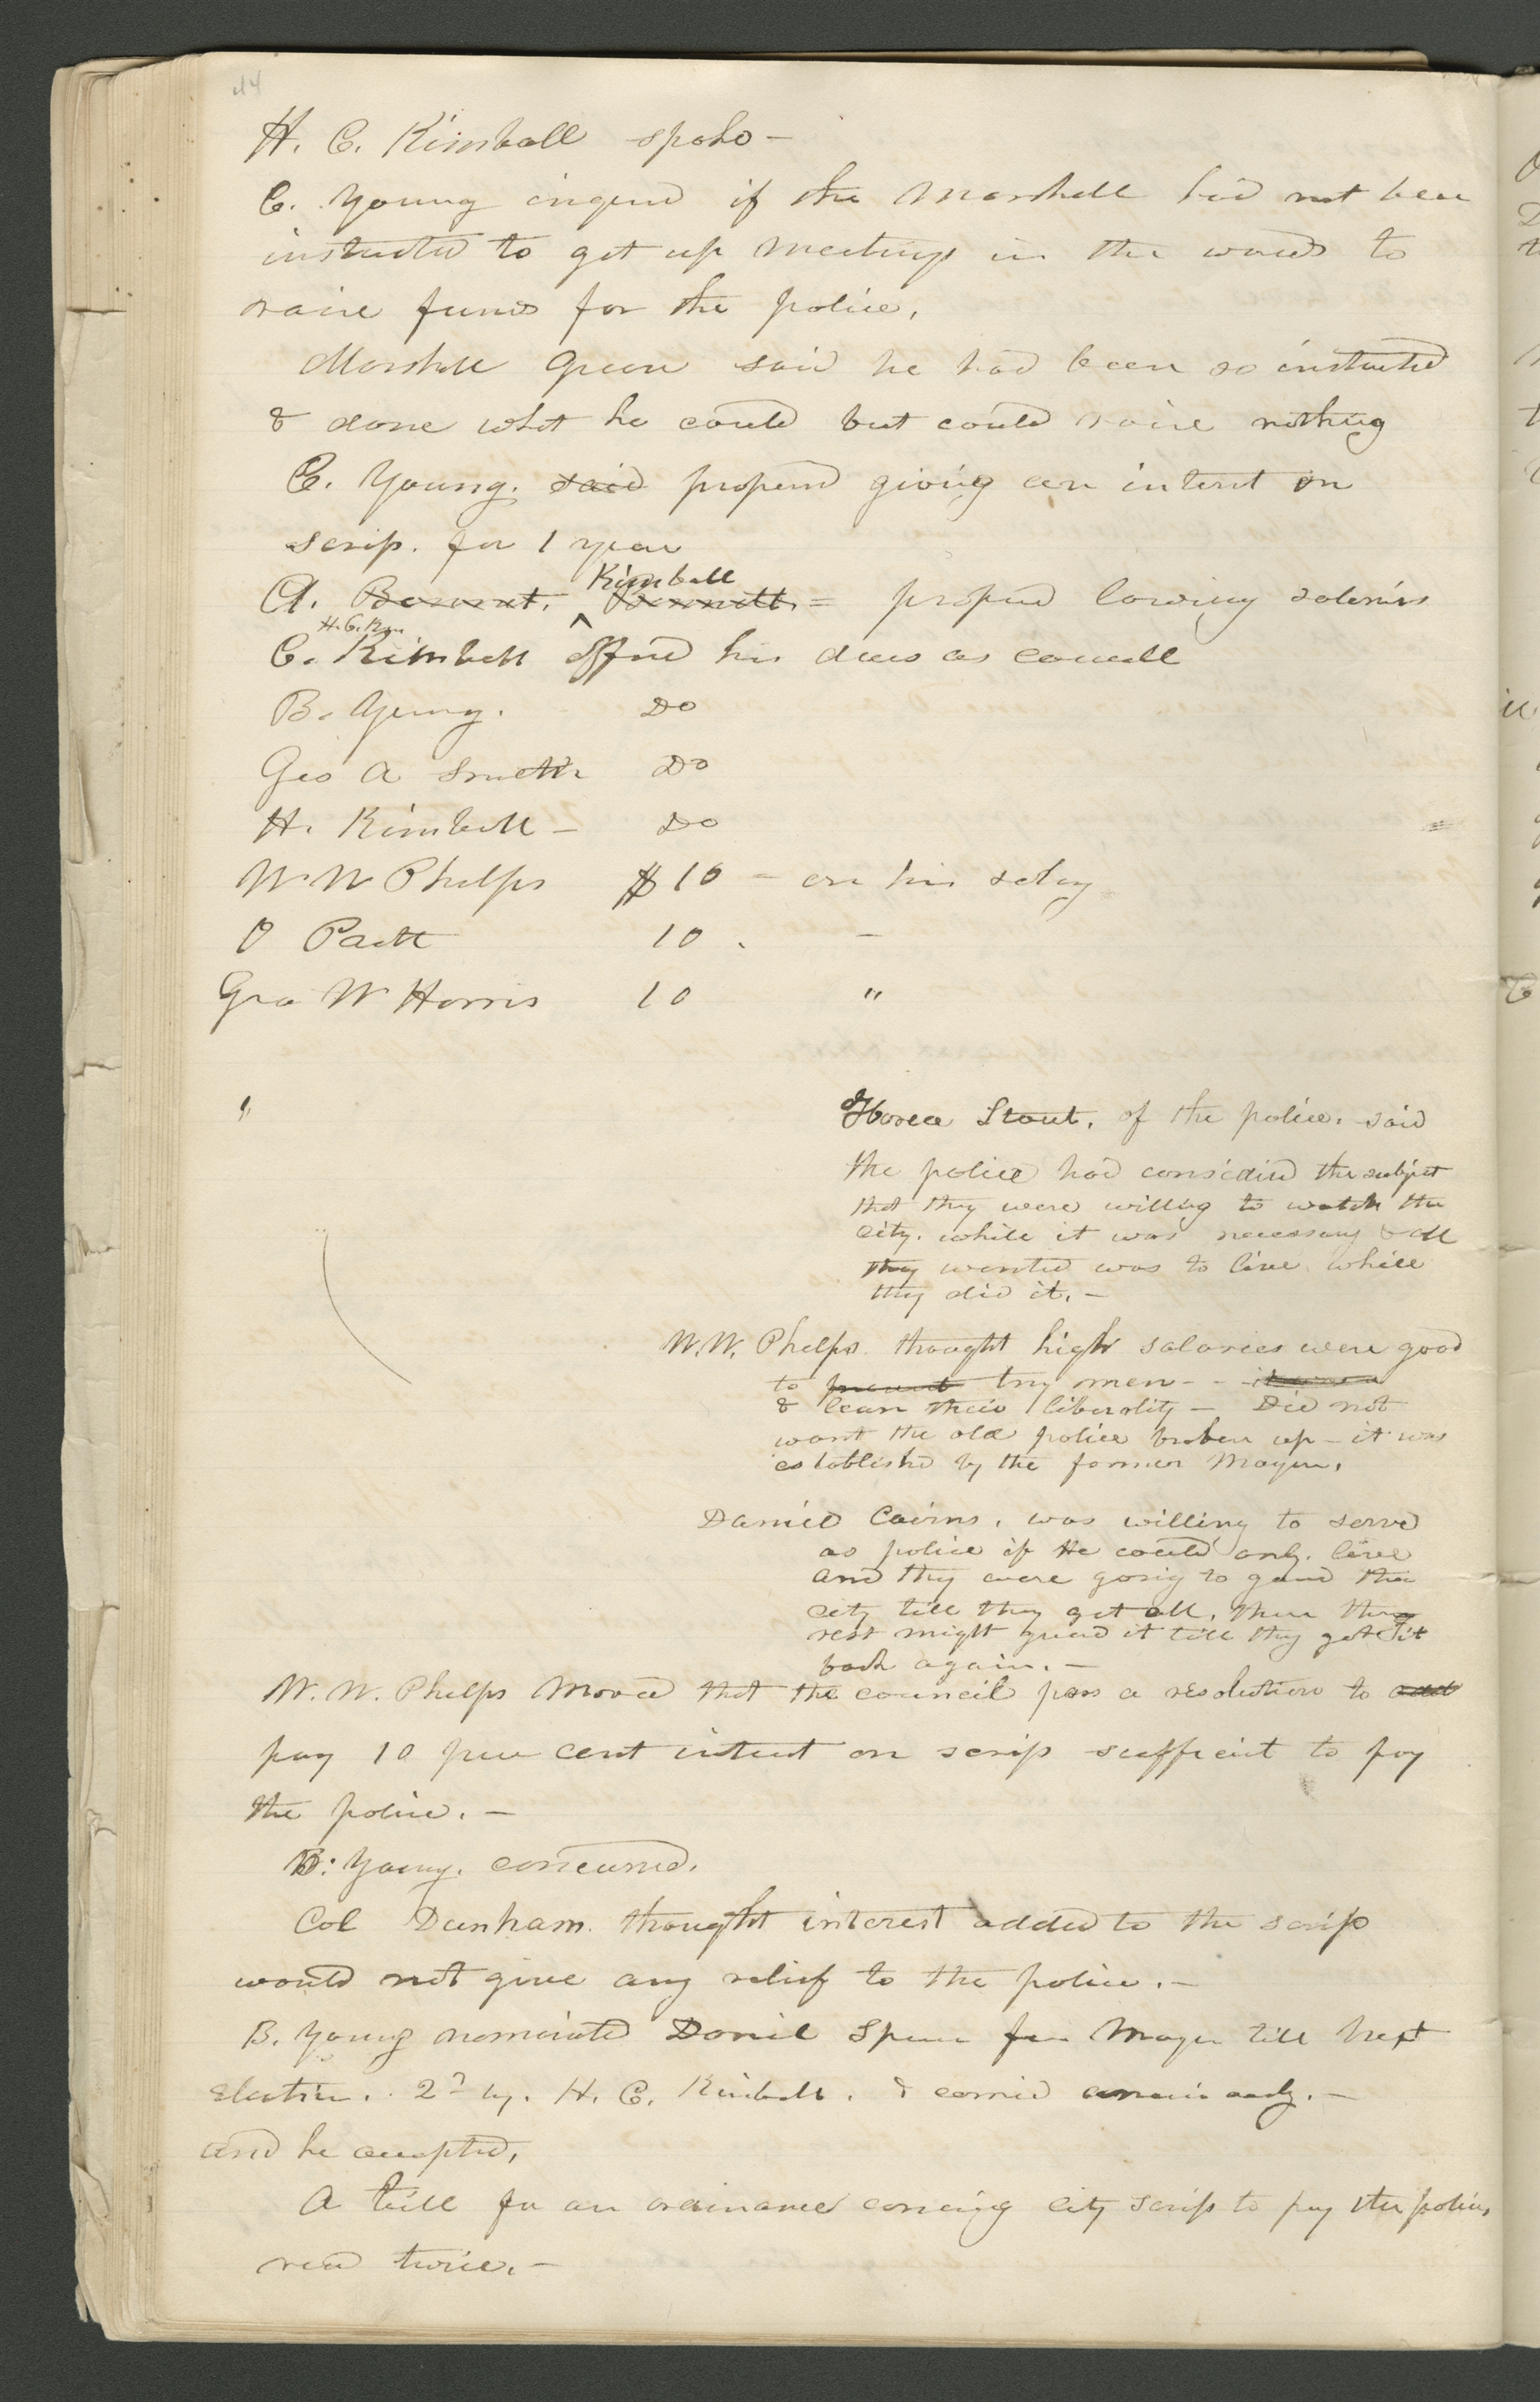 44
H. C. Kimball spoke -
C. Young inqurd if the Marshall had not been
instructed to get up meetings in the wards to
raise funds for the police,
Marshall Green said he had been so instructed
& done what he could but could raise nothing
C. Young. said proposed giving an interest on
scrip. for 1 year
Kimball
A. Bennet. Bennett. = proposed lowering salaries
H. C. Kim
C. Kimball offered his dues as councill
B. Young. Do
Geo A Smith Do
H. Kimball - Do
W W Phelps $10 - on his salary
O Pratt 10 . -
Geo W Harris 10 "
"
Hosea Stout, of the police. said
the police had considered the subject
that they were willing to watch the
city. while it was necessary & all
they wanted was to live while
they did it. -
W. W. Phelps. thought high salaries were good
to prevent try men - -
& learn their liberality - Did not
want the old police broken up - it was
established by the former Mayor.
Daniel Cairns, was willing to serve
as police if He could only. live
and they were going to guard the
city till they get all, then the
rest might guard it till they get it
back again. -
W. W. Phelps Moved that the council pass a resolution to add
pay 10 per cent interest on scrip sufficient to pay
the police. -
B. Young. concurred.
Col Dunham. thought interest added to the scrip
would not give any relief to the police. -
B. Young nominated Daniel Spencer for Mayor till Next
Election. 2d by. H. C. Kimball. & carried unanimously. -
and he accepted,
A bill for an ordinance concering city scrip to pay the police,
read twice. -